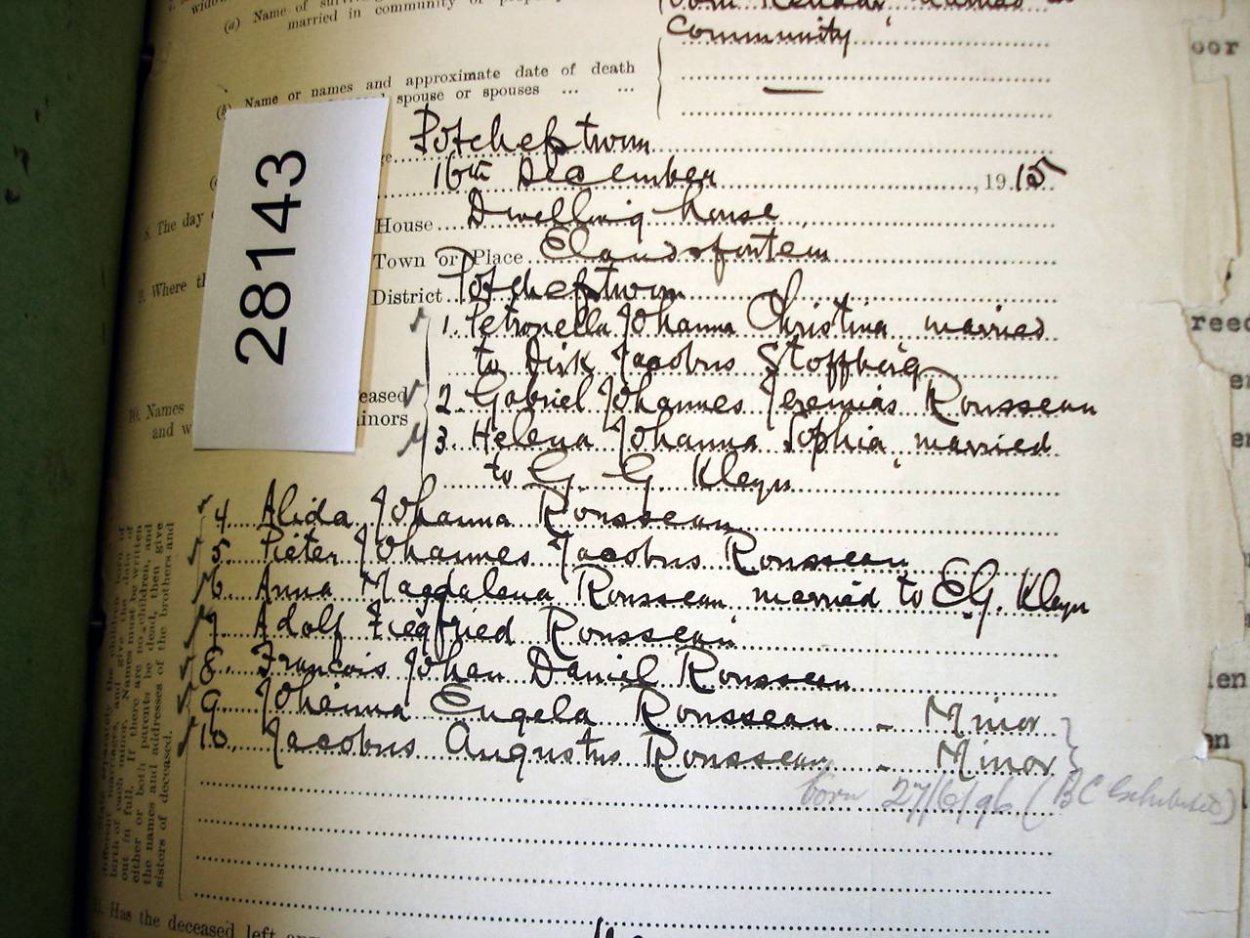 (a) Name of
married in community
Community
(b) Name or names and approximate date of death
spouse or spouses ... ...
Potchefstroom
16th December , 1915
The day
House Dwelling house
Town or Place Elandsfontein
9. Where
District Potchefstroom
1. Petronella Johanna Christina married
to Dirk Jacobus Stoffberg
10. Names
and
eased
inors
2. Gabriel Johannes Jeremias Rousseau
3. Helena Johanna Sophia married
to G. G. Kleyn
4 Alida Johanna Rousseau
5 Pieter Johannes Jacobus Rousseau
6. Anna Magdalena Rousseau married to E.G. Kleyn
7. Adolf Ziegfried Rousseau
8. Francois Johan Daniel Rousseau
9. Johanna Engela Rousseau - Minor
10. Jacobus Augustus Rousseau - Minor
born 27/6/96 (BC Exhibited)
birth of each minor. Names must be written
out in full. If there are no children, and
either or both parents be dead, then give
the names and addresses of the brothers and
sisters of deceased.
Has the deceased left
28143
oor
reed
en